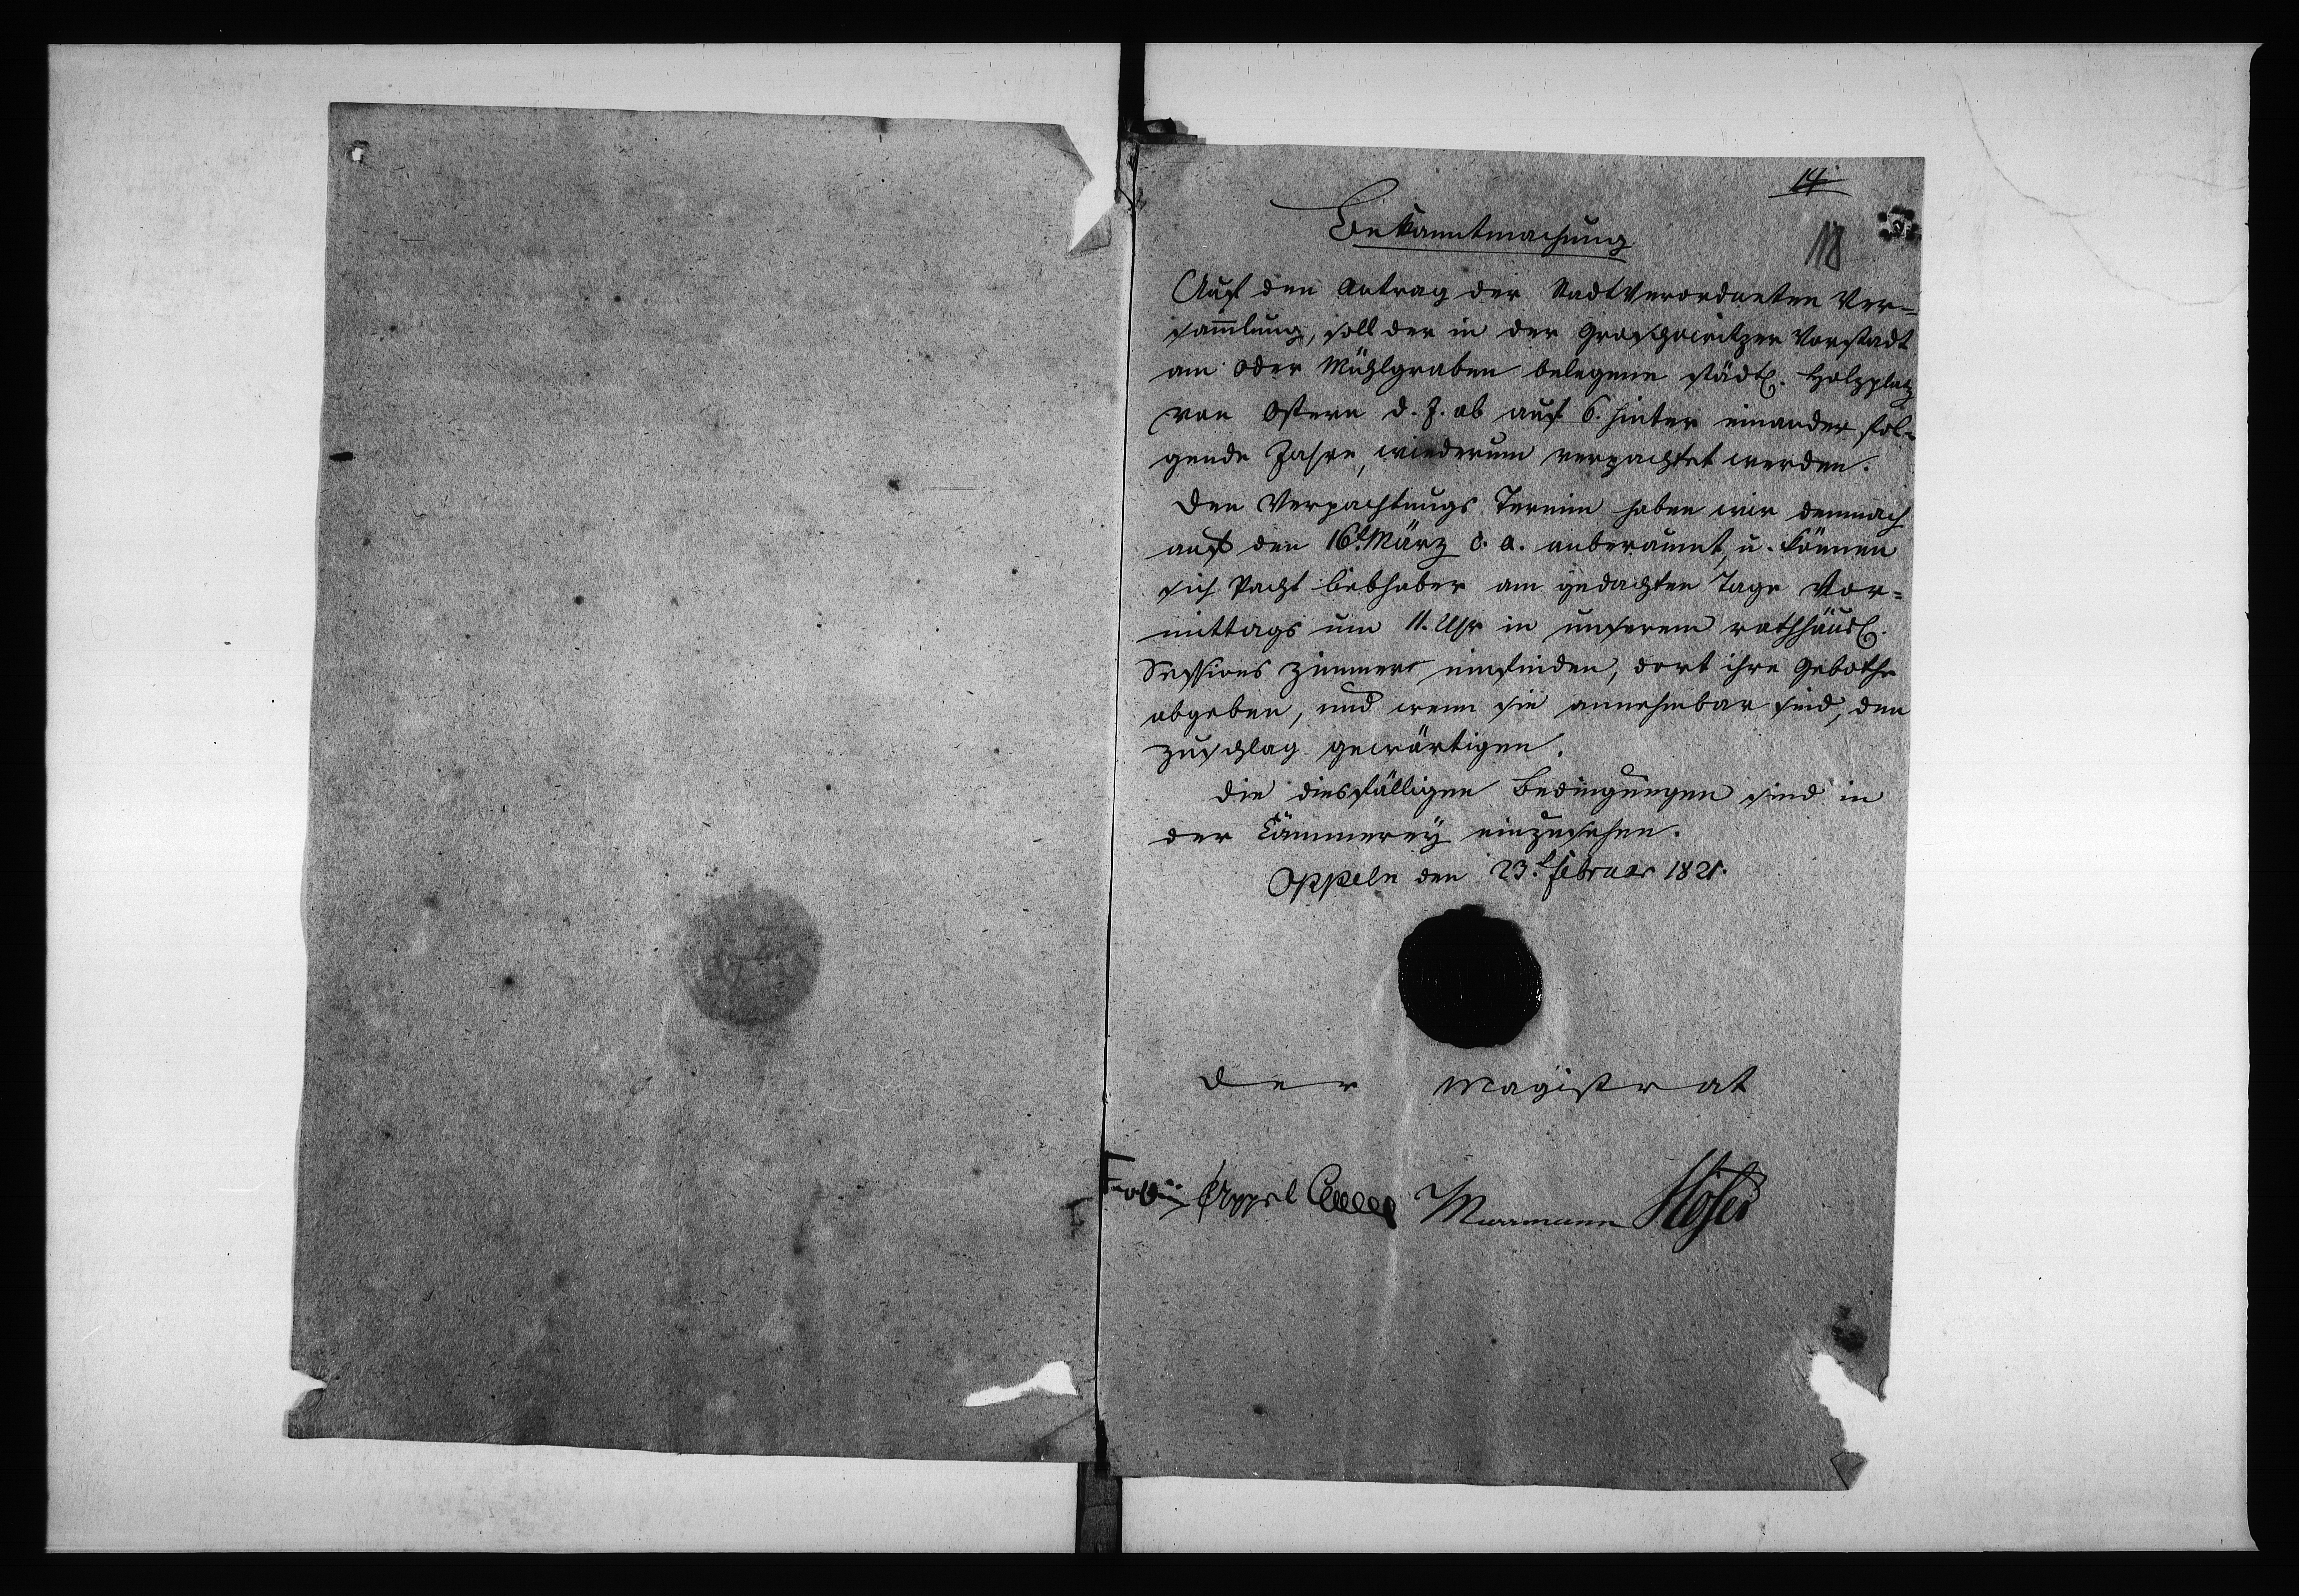 14
118
Bekanntmachung
Auf den Antrag der Stadtverordneten Ver=
sam̄lung, soll der in der Groschowitzer Vorstadt
am Oder Mühlgraben belegene städtl. Holzplatz
von Ostern d. J. ab auf 6. hinter einander fol=
gende Jahre, wiederum verpachtet werden.
Den Verpachtungs Termin haben wir demnach
auf den 16t. März d. a. anberaumt, u. können
sich Pacht liebhaber am gedachten Tage Vor=
mittags um 11. Uhr in unserem rathhäusl.
Sessions Zimmer einfinden, dort ihre Gebothe
abgeben, und wenn sie annehmbar sind, den
Zuschlag gewärtigen.
Die diesfälligen Bedingungen sind in
der Cämmerey einzusehen.
Oppeln den 23t. Februar 1821.
Der Magistrat
Murmann Höfer